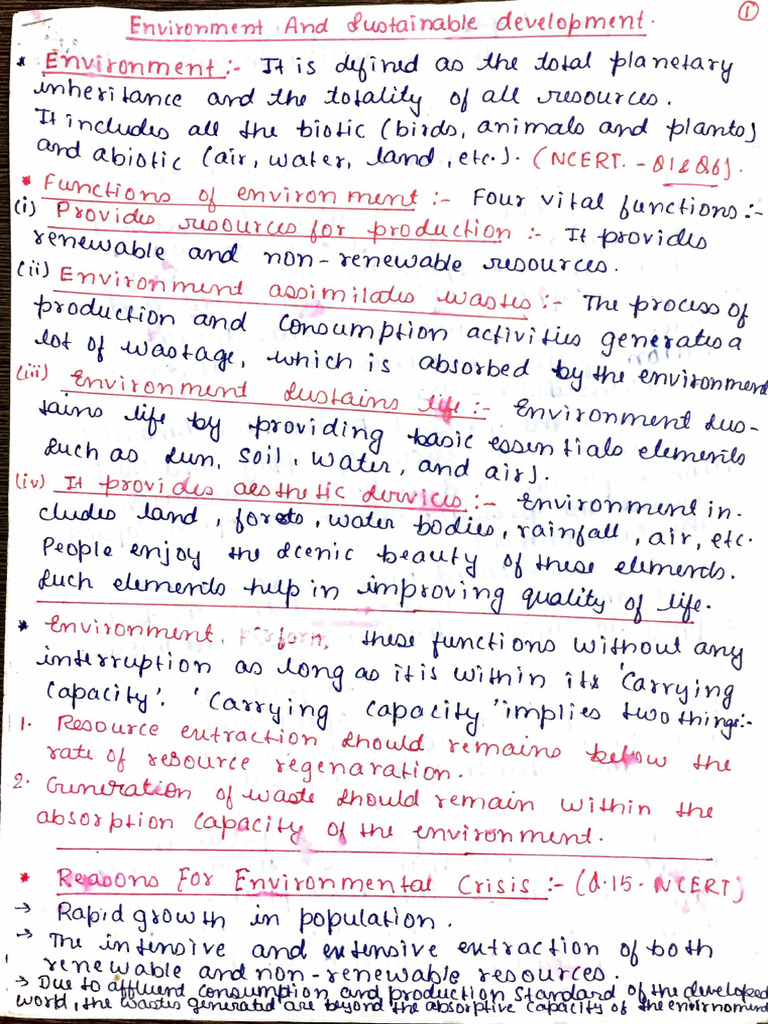 ①
Environment And Sustainable development.
* Environment :- It is defined as the total planetary
inheritance and the totality of all resources.
It includes all the biotic (birds, animals and plants)
and abiotic (air, water, land, etc.). (NCERT. - Q1 & Q6).
* Functions of environment :- Four vital functions :-
(i) Provides resources for production :- It provides
renewable and non-renewable resources.
(ii) Environment assimilates wastes :- The process of
production and consumption activities generates a
lot of wastage, which is absorbed by the environment
(iii) Environment sustains life :- Environment sus-
tains life by providing basic essentials elements
such as sun, soil, water, and air).
(iv) It provides aesthetic services :- Environment in-
cludes land, forests, water bodies, rainfall, air, etc.
People enjoy the scenic beauty of these elements.
Such elements help in improving quality of life.
* Environment perform, these functions without any
interruption as long as it is within its 'carrying
capacity'. 'Carrying capacity' implies two things:-
1. Resource extraction should remains below the
rate of resource regenaration.
2. Generation of waste should remain within the
absorption capacity of the environment.
* Reasons For Environmental Crisis :- (Q.15. NCERT)
→ Rapid growth in population.
→ The intensive and extensive extraction of both
renewable and non-renewable resources.
→ Due to affluent consumption and production standard of the developed
world, the wastes generated are beyond the absorptive capacity of the envirnoment